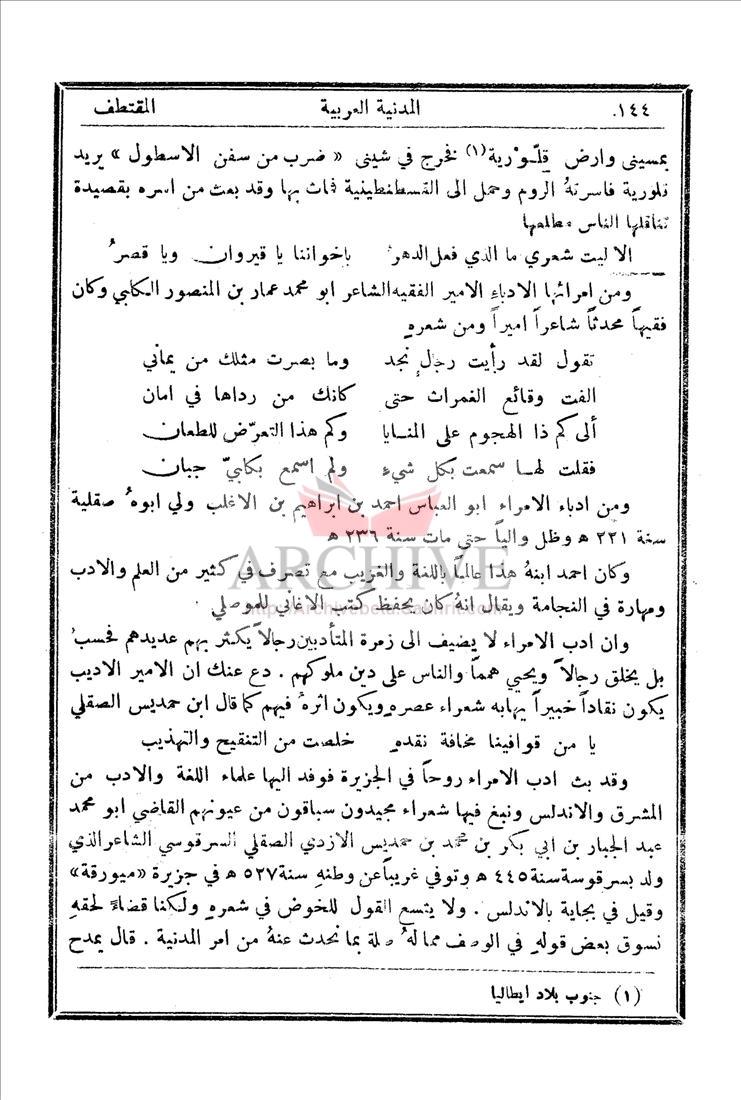 ١٤٤ المدنية العربية المقتطف
بمسيني وارض قِلَّوْرية(١) فخرج في شيني « ضرب من سفن الاسطول » يريد
قلورية فاسرتهُ الروم وحمل الى القسطنطينية فمات بها وقد بعث من اسره بقصيدة
تناقلها الناس مطلعها
الا ليت شعري ما الذي فعل الدهرُ بإخواننا يا قيروان ويا قصرُ
ومن امرائها الادباء الامير الفقيه الشاعر ابو محمد عمار بن المنصور الكلبي وكان
فقيهاً محدثاً شاعراً اميراً ومن شعرهِ
تقول لقد رأيت رجال نجد وما بصرت مثلك من يماني
الفت وقائع الغمرات حتى كانك من رداها في امان
ألى كم ذا الهجوم على المنايا وكم هذا التعرّض للطعان
فقلت لها سمعت بكل شيءٍ ولم اسمع بكلبيّ جبان
ومن ادباء الامراء ابو العباس احمد بن ابراهيم بن الاغلب ولي ابوهُ صقلية
سنة ٢٢١ ه وظل والياً حتى مات سنة ٢٣٦ ه
وكان احمد ابنهُ هذا عالماً باللغة والغريب مع تصرف في كثير من العلم والادب
ومهارة في النجامة ويقال انهُ كان يحفظ كتب الاغاني للموصلي
وان ادب الامراء لا يضيف الى زمرة المتأدبين رجالاً يكثر بهم عديدهم فحسبُ
بل يخلق رجالاً ويحيي همماً والناس على دين ملوكهم . دع عنك ان الامير الاديب
يكون نقاداً خبيراً يهابه شعراء عصرهِ ويكون اثرهُ فيهم كما قال ابن حمديس الصقلي
يا من قوافينا مخافة نقدهِ خلصت من التنقيح والتهذيب
وقد بث ادب الامراء روحاً في الجزيرة فوفد اليها علماء اللغة والادب من
المشرق والاندلس ونبغ فيها شعراء مجيدون سباقون من عيونهم القاضي ابو محمد
عبد الجبار بن ابي بكر بن محمد بن حمديس الازدي الصقلي السرقوسي الشاعر الذي
ولد بسرقوسة سنة ٤٤٥ ه وتوفي غريباً عن وطنهِ سنة ٥٢٧ ه في جزيرة «ميورقة»
وقيل في بجاية بالاندلس . ولا يتسع القول للخوض في شعرهِ ولكنا قضاءً لحقهِ
نسوق بعض قولهِ في الوصف مما لهُ صلة بما نحدث عنهُ من امر المدنية . قال يمدح
(١) جنوب بلاد ايطاليا
ARCHIVE